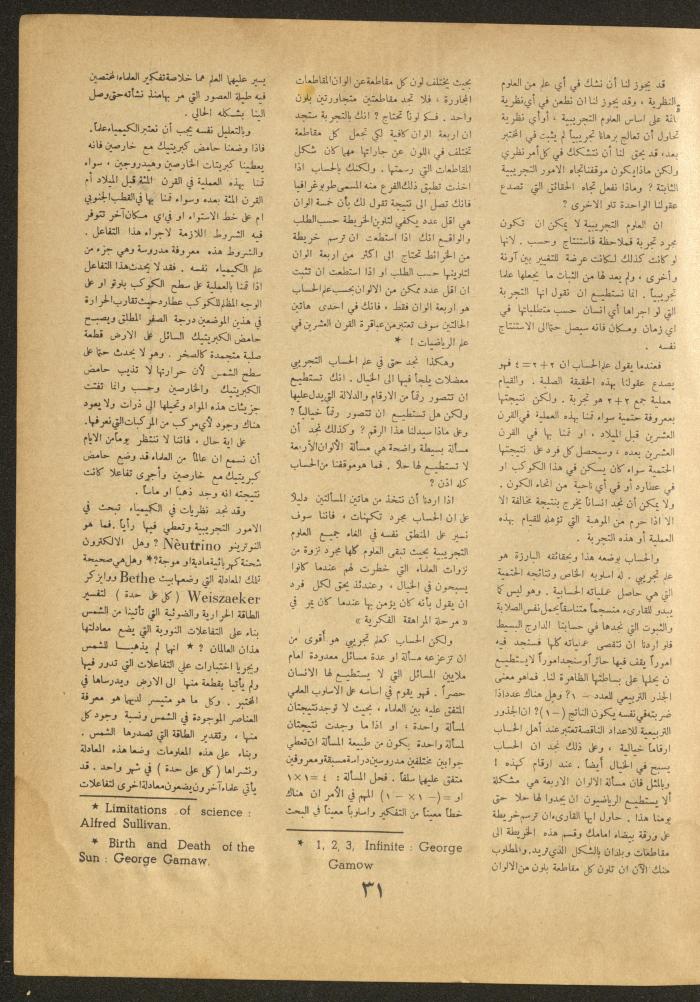 قد يجوز لنا أن نشك في أي علم من العلوم
النظرية ، وقد يجوز لنا ان نطعن في أي نظرية
قائمة على اساس العلوم التجريبية ، أو أي نظرية
تحاول أن تعالج برهانا تجريبياً لم يثبت في المختبر
بعد، قد يحق لنا أن نتشكك في كل أمر نظري
ولكن ماذا يكون موقفنا تجاه الامور التجريبية
الثابتة ؟ وماذا نفعل تجاه الحقائق التي تصدع
عقولنا الواحدة تلو الاخرى ؟
ان العلوم التجريبية لا يمكن ان تكون
مجرد تجربة فملاحظة فاستنتاج وحسب . لانها
لو كانت كذلك لكانت عرضة للتغيير بين آونة
وأخرى ، ولم يعد لها من الثبات ما يجعلها علما
تجريبياً . انما نستطيع ان نقول انها التجربة
التي لو اجراها أي انسان حسب متطلباتها في
اي زمان ومكان فانه سيصل حتما الى الاستنتاج
نفسه .
فعندما يقول علم الحساب ان ٢+٢=٤ فهو
يصدع عقولنا بهذه الحقيقة الصلبة . والقيام
بعملية جمع ٢+٢ هو تجربة . ولكن نتيجتها
بمعروفة حتمية سواء قمنا بهذه العملية في القرن
العشرين قبل الميلاد ، او قمنا بها في القرن
العشرين بعده ، وسيحصل كل فرد على نتيجتها
الحتمية سواء كان يسكن في هذا الكوكب او
في عطارد أو في أي ناحية من انحاء الكون .
ولا يمكن أن نجد انسانا يخرج بنتيجة مخالفة الا
الا اذا حرم من الموهبة التي تؤهله للقيام بهذه
العملية أو هذه التجربة .
والحساب بوضعه هذا وبحقائقه البارزة هو
علم تجريبي . له اسلوبه الخاص ونتائجه الحتمية
التي هي حاصل عملياته الحسابية . وهو ليس كما
يبدو للقارىء منسجماً متناسقاً يحمل نفس الصلابة
والثبوت التي نجدها في حسابنا الدارج البسيط
فلو اردنا ان نتقصى عملياته كلها فسنجد فيه
اموراً يقف فيها حائراً وسنجد اموراً لا يستطيع
ن يحلها على بساطتها الظاهرة لنا. فما هو معنى
الجذر التربيعي للعدد – ١؟ وهل هناك عدد اذا
ضربته في نفسه يكون الناتج (–١)؟ ان الجذور
التربيعية للاعداد الناقصة تعتبر عند أهل الحساب
ارقاما خيالية ، وعلى ذلك نجد ان الحساب
يسبح في الخيال أيضاً . عند ارقام كهذه !
وبالمثل فان مسألة الالوان الاربعة هي مشكلة
ألا يستطيع الرياضيون ان يجدوا لها حلا حتى
يومنا هذا . حاول ايها القارىء ان ترسم خريطة
على ورقة بيضاء امامك وقسم هذه الخريطة الى
مقاطعات وبلدان بالشكل الذي تريد. والمطلوب
منك الآن ان تلون كل مقاطعة بلون من الالوان
بحيث يختلف لون كل مقاطعة عن الوان المقاطعات
المجاورة ، فلا تجد مقاطعتين متجاورتين بلون
واحد . فكم لوناً تحتاج ؟ انك بالتجربة ستجد
ان اربعة الوان كافية لكي تجعل كل مقاطعة
تختلف في اللون عن جاراتها مهما كان شكل
المقاطعات التي رسمتها . ولكنك بالحساب اذا
اخذت تطبق ذلك الفرع منه المسمى طوبوغرافيا
فانك تصل الى نتيجة تقول لك بأن خمسة الوان
هي اقل عدد يكفي لتلوين الخريطة حسب الطلب
والواقع انك اذا استطعت ان ترسم خريطة
من الخرائط تحتاج الى اكثر من اربعة الوان
لتلوينها حسب الطلب او اذا استطعت ان تثبت
ان اقل عدد ممكن من الالوان بحسب علم الحساب
هو اربعة الوان فقط ، فانك في احدى هاتين
الحالتين سوف تعتبر من عباقرة القرن العشرين في
علم الرياضيات ! *
وهكذا نجد حتى في علم الحساب التجريبي
معضلات يلجأ فيها الى الخيال . انك تستطيع
ان تتصور رقماً من الارقام والدلالة التي يدل عليها
ولكن هل تستطيع ان تتصور رقماً خيالياً ؟
وعلى ماذا سيدلنا هذا الرقم ؟ وكذلك نجد أن
مسألة بسيطة واضحة هي مسألة الألوان الأربعة
لا تستطيع لها حلا . فما هو موقفنا من الحساب
كله اذن ؟
اذا اردنا أن نتخذ من هاتين المسألتين دليلا
على ان الحساب مجرد تكهنات ، فاننا سوف
نسير على المنطق نفسه في الغاء جميع العلوم
التجريبية بحيث تبقى العلوم كلها مجرد نزوة من
نزوات العلماء التي خطرت لهم عندما كانوا
يسبحون في الخيال ، وعندئذ يحق لكل فرد
ان يقول بأنه كان يؤمن بها عندما كان يمر في
« مرحلة المراهقة الفكرية »
ولكن الحساب كعلم تجريبي هو أقوى من
ان تزعزعه مسألة او عدة مسائل معدودة امام
ملايين المسائل التي لا يستطيع لها الانسان
حصراً . فهو يقوم في اساسه على الاسلوب العلمي
المتفق عليه بين العلماء ، بحيث لا توجد نتيجتان
لمسألة واحدة ، او اذا ما وجدت نتيجتان
لمسألة واحدة يكون من طبيعة المسألة ان تعطي
جوابين مختلفين مدروسين دراسة مسبقة ومعروفين
متفق عليهما سلفاً . فحل المسألة : ٤ =١×١
او =(– ١× – ١) المهم في الأمر ان هناك
خطاً معيناً من التفكير واسلوباً معيناً في البحث
* 1, 2, 3, Infinite : George
Gamow
يسير عليهما العلم هما خلاصة تفكير العلماء المختصين
فيه طيلة العصور التي مر بها منذ نشأته حتى وصل
الينا بشكله الحالي .
وبالتعليل نفسه يجب أن نعتبر الكيمياء علماً.
فاذا وضعنا حامض كبريتيك مع خارصين فانه
يعطينا كبريتات الخارصين وهيدروجين ، سواء
قمنا بهذه العملية في القرن المئة قبل الميلاد أم
القرن المئة بعده وسواء قمنا بها في القطب الجنوبي
ام على خط الاستواء او في اي مكان آخر تتوفر
فيه الشروط اللازمة لاجراء هذا التفاعل .
والشروط هذه معروفة مدروسة وهي جزء من
علم الكيمياء نفسه . فقد لا يحدث هذا التفاعل
اذا قمنا بالعملية على سطح الكوكب بلوتو او على
الوجه المظلم للكوكب عطارد حيث تقارب الحرارة
في هذين الموضعين درجة الصفر المطلق ويصبح
حامض الكبريتيك السائل على الارض قطعة
صلبة متجمدة كالصخر . وهو لا يحدث حتما على
سطح الشمس لأن حرارتها لا تذيب حامض
الكبريتيك والخارصين وحسب وانما تفتت
جزيئات هذه المواد وتحيلها الى ذرات ولا يعود
هناك وجود لأي مركب من المركبات التي نعرفها.
على اية حال ، فاننا لا ننتظر يوماً من الايام
أن نسمع ان عالماً من العلماء قد وضع حامض
كبريتيك مع خارصين وأجرى تفاعلا كانت
نتيجته انه وجد ذهباً او ماساً .
وقد نجد نظريات في الكيمياء تبحث في
الامور التجريبية وتعطي فيها رأياً . فما هو
النوترينو Nèutrino ؟ وهل الالكترون
شحنة كهربائية مادية او موجة؟* وهل هي صحيحة
تلك المعادلة التي وضعها بيث Bethe ووايزكر
Weiszaeker (كل على حدة ) لتفسير
الطاقة الحرارية والضوئية التي تأتينا من الشمس
بناء على التفاعلات النووية التي يضع معادلتها
هذان العالمان ؟ * انهما لم يذهبا للشمس
ويجريا اختبارات على التفاعلات التي تدور فيها
ولم يأتيا بقطعة منها الى الارض ويدرساها في
المختبر . وكل ما هو متيسر لديهما هو معرفة
العناصر الموجودة في الشمس ونسبة وجود كل
منها ، وتقدير الطاقة التي تصدرها الشمس .
وبناء على هذه المعلومات وضعا هذه المعادلة
ونشراها ( كل على حدة ) في شهر واحد . قد
يأتي علماء آخرون يضعون معادلة اخرى لتفاعلات
* Limitations of science :
Alfred Sullivan.
* Birth and Death of the
Sun : George Gamaw.
٣١